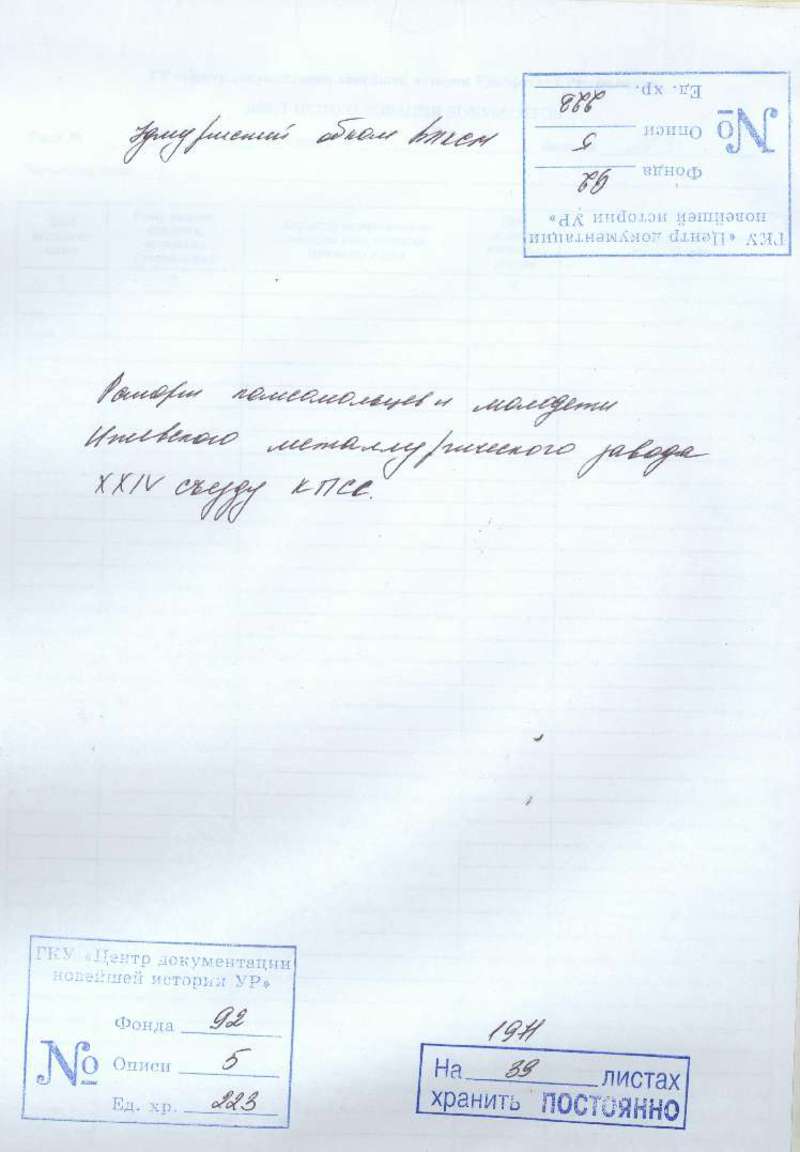 Удмуртский обком ВЛКСМ
ГКУ «Центр документации
новейшей истории УР»
Фонда 92
№ Описи 5
Ед. хр. 223
Рапорт комсомольцев и молодежи
Ижевского металлургического завода
XXIV съезду КПСС.
ГКУ «Центр документации
новейшей истории УР»
Фонда 92
№ Описи 5
Ед. хр. 223
1971
На 39 листах
хранить ПОСТОЯННО